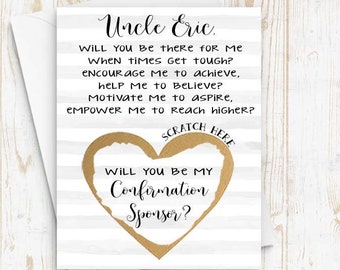 Uncle Eric,
WILL YOU BE THERE FOR ME
WHEN TIMES GET TOUGH?
ENCOURAGE ME TO ACHIEVE,
HELP ME TO BELIEVE?
MOTIVATE ME TO ASPIRE,
EMPOWER ME TO REACH HIGHER?
SCRATCH HERE
WILL YOU BE MY
Confirmation
Sponsor?